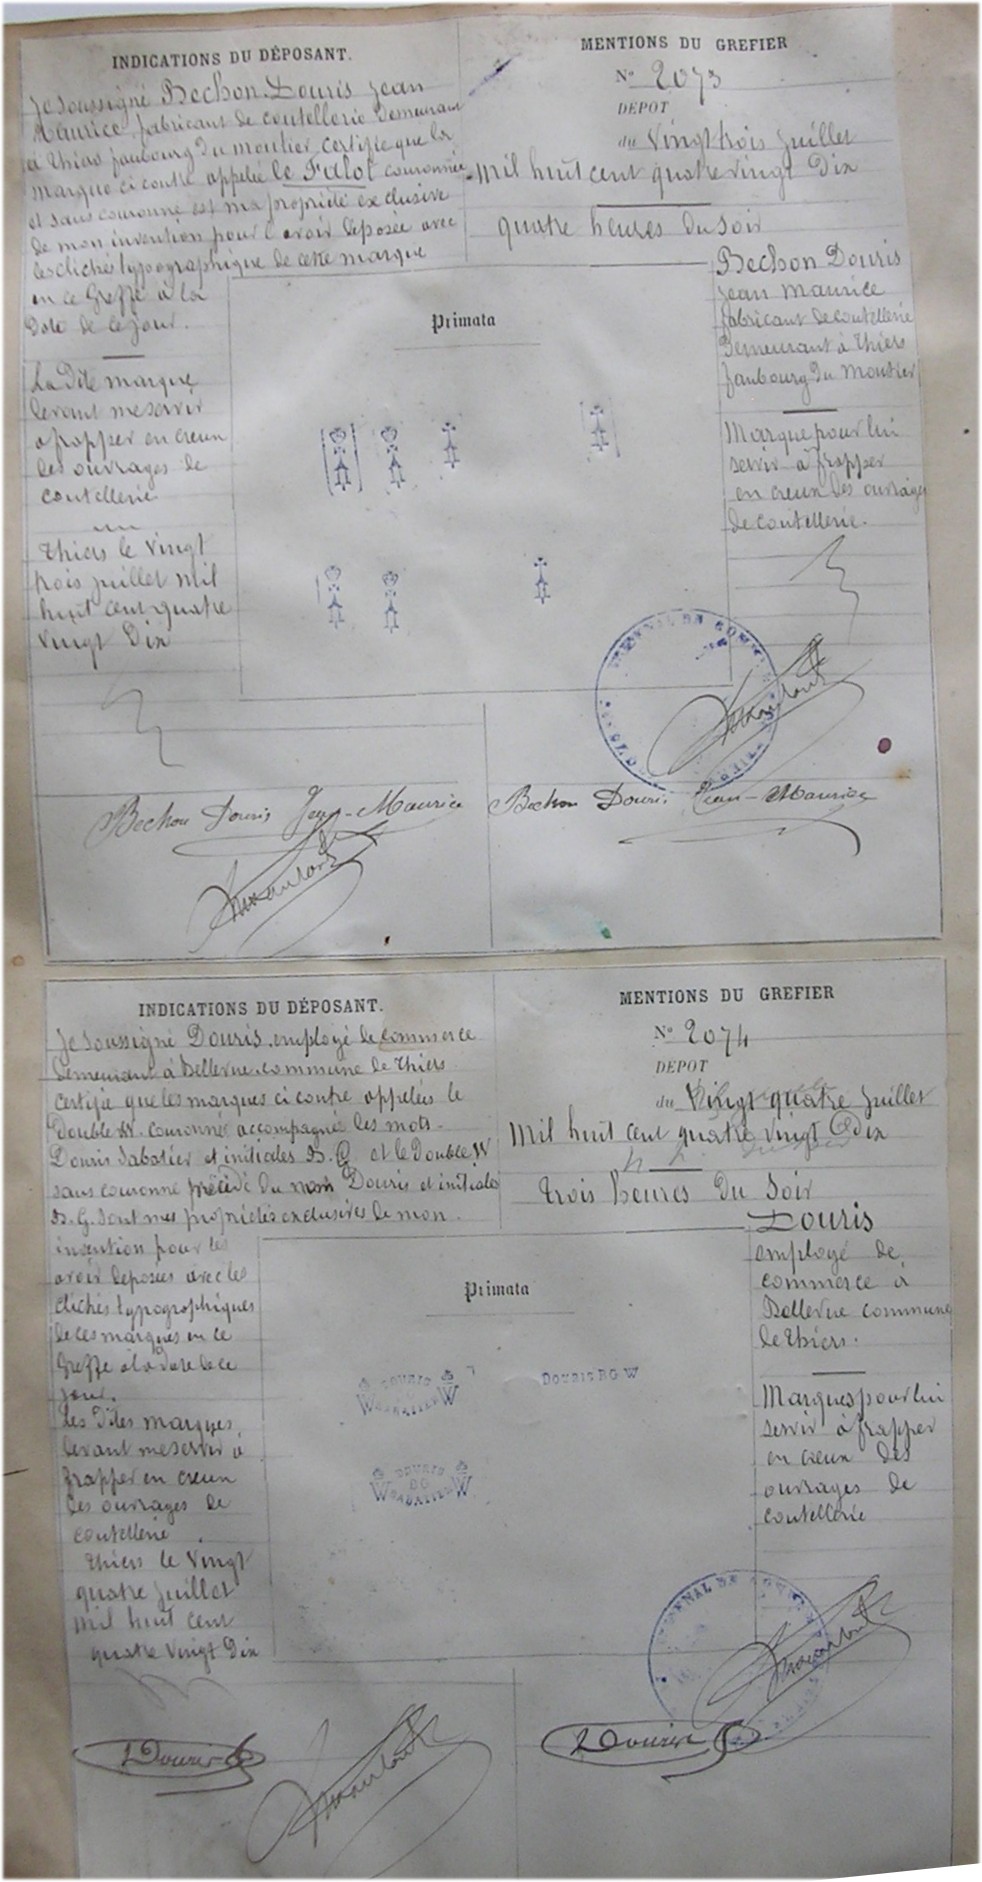 INDICATIONS DU DÉPOSANT.
Je soussigné Bechon Douris Jean
Maurice, fabricant de coutellerie Demeurant
à Thiers faubourg du moutier, certifie que la
marque ci contre appelée le Falot couronnée
et sans couronne est ma propriété exclusive
de mon invention pour l'avoir déposée avec
les clichés typographique de cette marque
en ce Greffe à la
Date de ce jour.
La Dite marque
devant me servir
a frapper en creux
des ouvrages de
coutellerie
Thiers le vingt
trois juillet mil
huit cent quatre
vingt Dix
MENTIONS DU GREFIER
N° 2073
DEPOT
du Vingt trois Juillet
Mil huit cent quatre vingt Dix
quatre heures du soir
Bechon Douris
Jean Maurice
fabricant de coutellerie
Demeurant à Thiers
faubourg du Moutier
Marque pour lui
servir à frapper
en creux des ouvrages
de coutellerie.
Primata
TRIBUNAL DE COMM
Bechon Douris Jean-Maurice
Bechon Douris Jean-Maurice
INDICATIONS DU DÉPOSANT.
Je soussigné Douris, employé de commerce
Demeurant à Bellevue commune de Thiers
certifie que les marques ci contre appelées le
Double W. couronné accompagné les mots
Douris Sabatier et initiales B. G et le Double W
sans couronne précédé du nom Douris et initiales
B. G. sont mes propriétés exclusives de mon
invention pour les
avoir déposées avec les
clichés typographiques
de ces marques en ce
Greffe à la date de ce
jour.
Les Dites marques
devant me servir à
frapper en creux
des ouvrages de
coutellerie.
Thiers le Vingt
quatre Juillet
mil huit cent
quatre Vingt Dix
MENTIONS DU GREFIER
N° 2074
DEPOT
du Vingt quatre Juillet
Mil huit cent quatre vingt Dix
Trois heures du Soir
Douris
employé de
commerce à
Bellevue commune
de Thiers.
Marques pour lui
servir à frapper
en creux des
ouvrages de
coutellerie
Primata
DOURIS
W SABATIER W
DOURIS BG W
DOURIS
BG
W SABATIER W
TRIBUNAL DE COMME
Douris
Douris